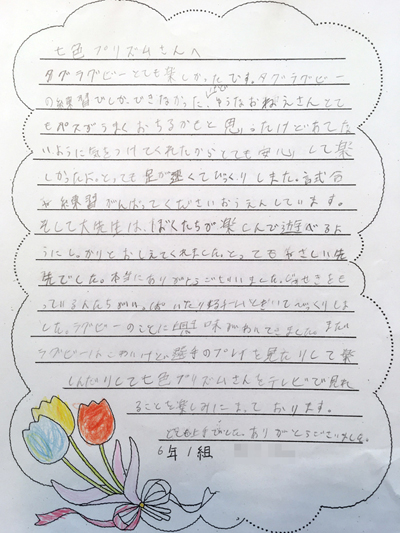 七色プリズムさんへ
タグラグビーとても楽しかったです。タグラグビー
の練習でしかできなかった、
もパスがうまく おちるかもと思ったけどあてな
いように気をつけてくれたからとても安心して楽
しかったに、とっても足が速くてびっくりしました。試合
や練習がんばってくださいおうえんしています。
そして大先生は、ぼくたちが楽しんで遊べるよ
うにしっかりとおしえてくれました。とってもやさしい先
生でした。本当にありがとうございました。
っている人たちがいっぱいいたり びっくりしま
した。ラグビーのことに興味がわいてきました。まだ
ラグビーは こわいけど選手のプレイを見たりして楽
しんだりして七色プリズムさんをテレビで見れ
ることを楽しみにまっております。
ありがとうございました。
6年1組